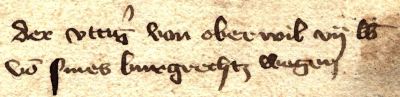 der vtting̾ von oberwil vij lb
vō sines burgrechtz wegen